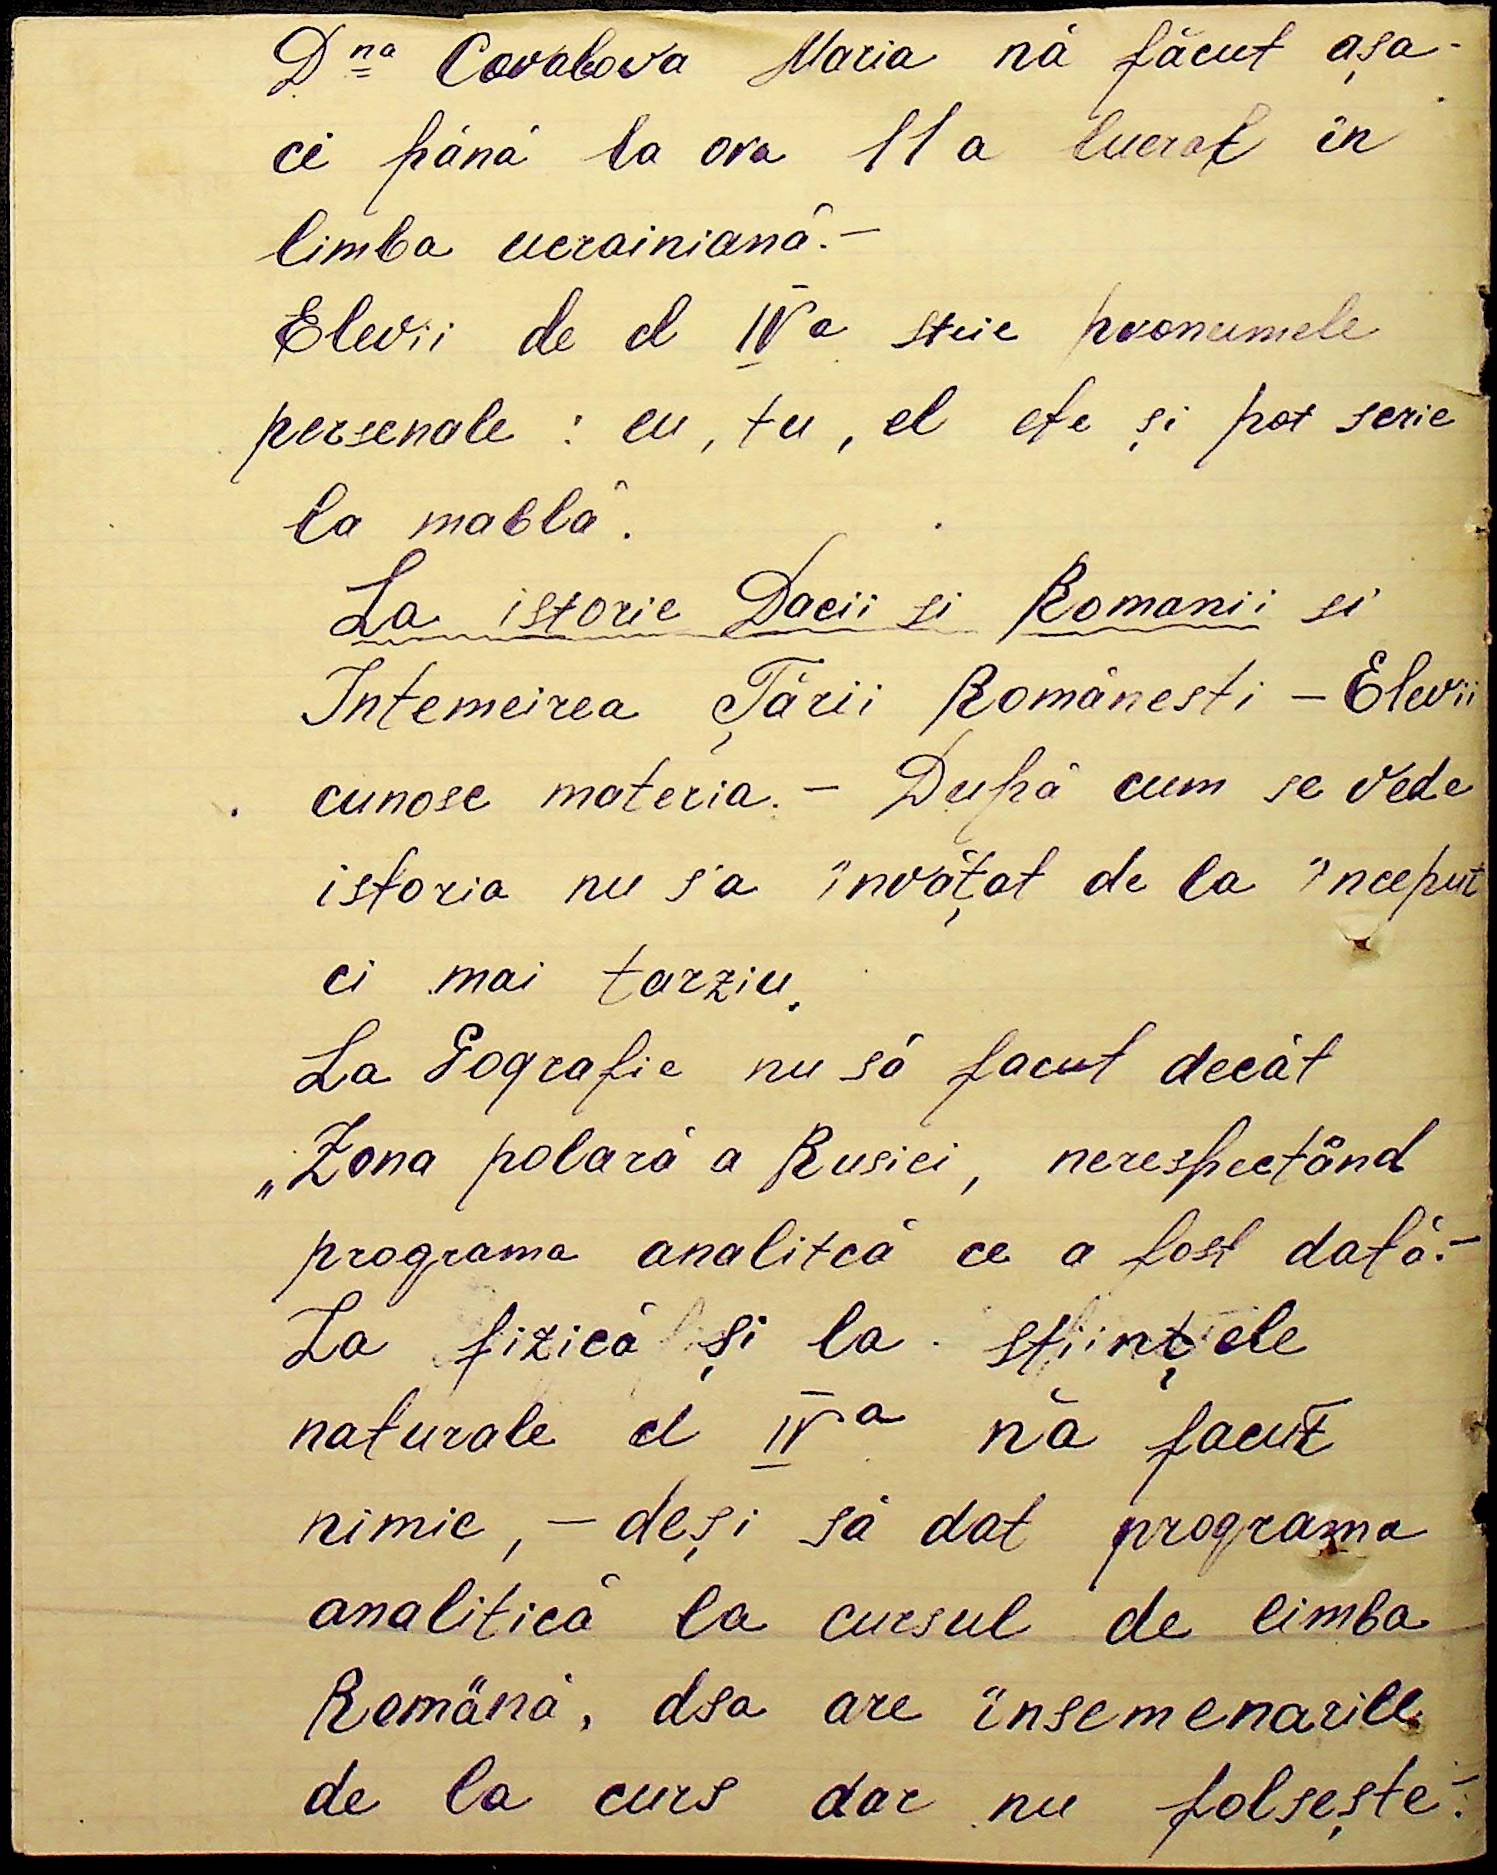 Dna Covalova Maria nă făcut așa-
ci până la ora 11 a lucrat în
limba ucrainiană.-
Elevii de cl IV a știe pronumele
personale : eu, tu, el etc și pot scrie
la mablă.
La istorie Dacii și Romanii si
Intemeirea Țării Românesti - Elevii
cunosc materia.- După cum se vede
istoria nu s'a învățat de la început
ci mai tarziu.
La Gografie nu să facut decât
„Zona polară a Rusiei, nerespectând
programa analitcă ce a fost dată.-
La fizică și la stiințele
naturale cl IV a nă facut
nimic, - deși să dat programa
analitică la cursul de limba
Română, dsa are însemenarile
de la curs dar nu folsește.-